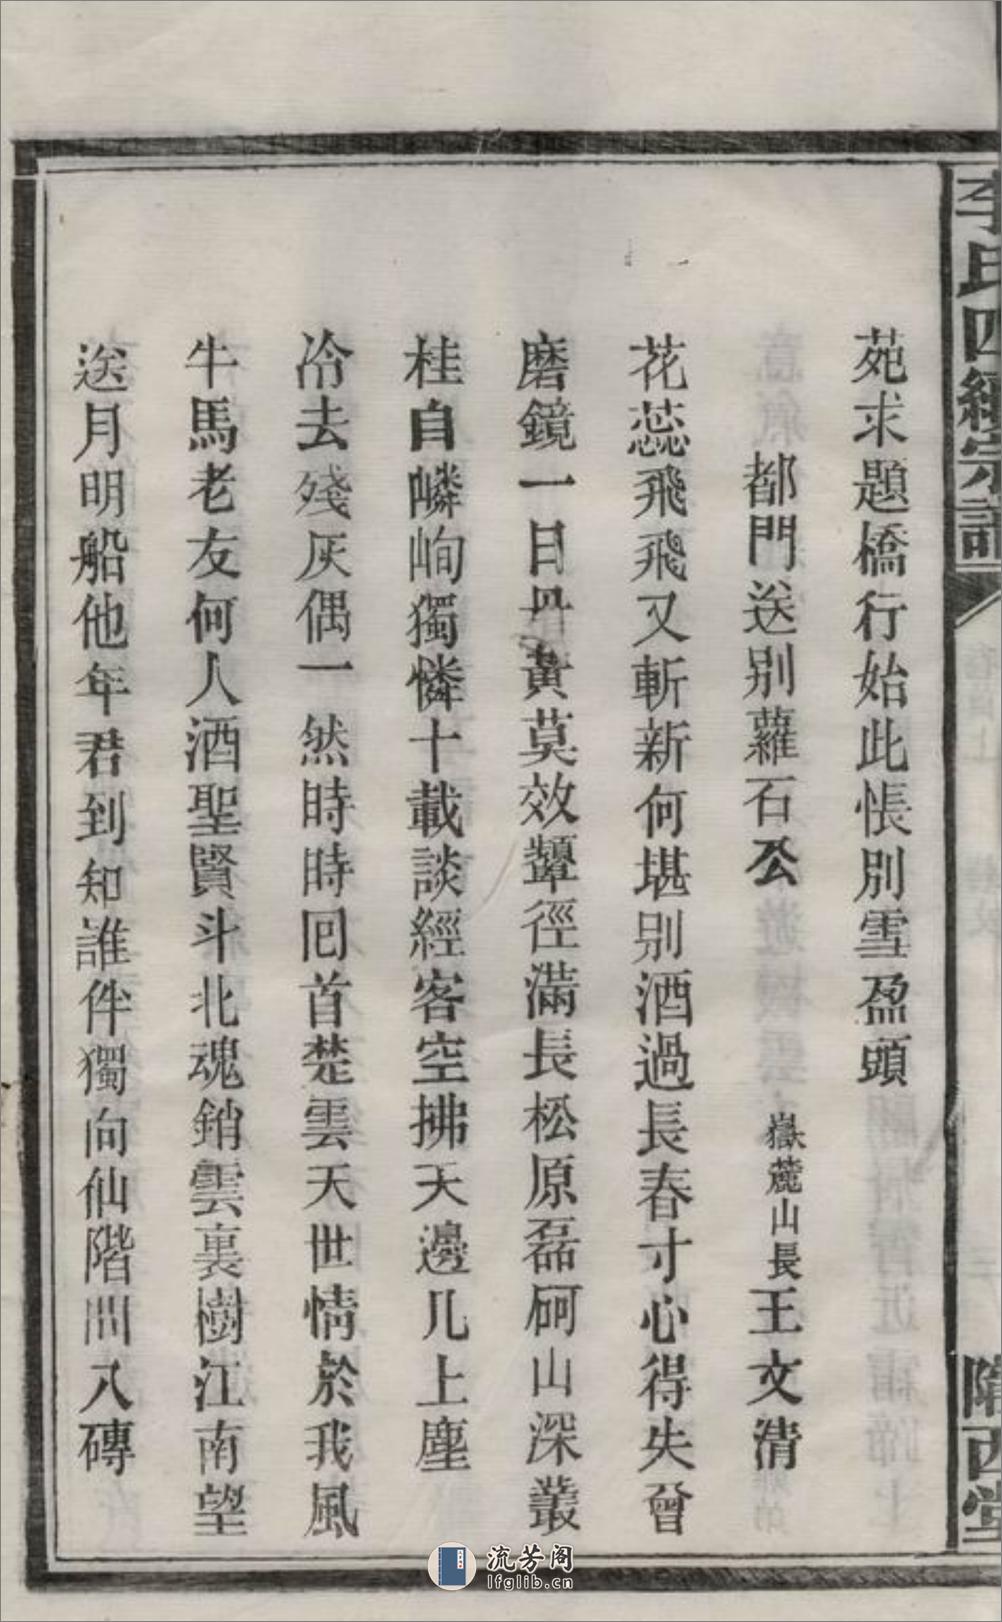 李氏四經宗譜
隴西堂
苑求題橋行始此悵別雪盈頭
都門送別蘿石公　嶽麓山長王文清
花蕊飛飛又斬新何堪別酒過長春寸心得失曾
磨鏡一日丹黃莫效顰徑滿長松原磊砢山深叢
桂自嶙峋獨憐十載談經客空拂天邊几上塵
冷去殘灰偶一然時時囘首楚雲天世情於我風
牛馬老友何人酒聖賢斗北魂銷雲裏樹江南望
送月明船他年君到知誰伴獨向仙階問八磚
流芳阁
lfglib.cn